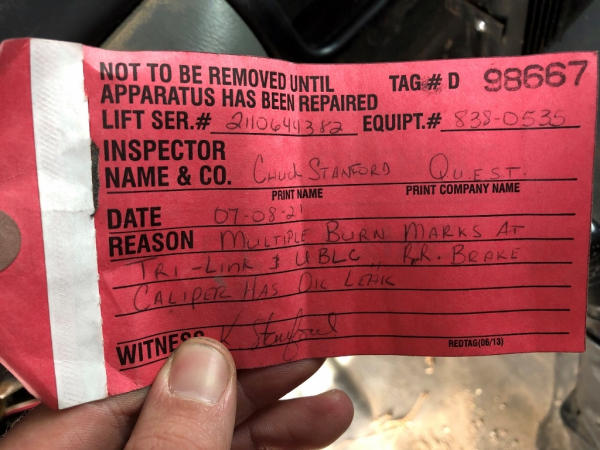 NOT TO BE REMOVED UNTIL TAG # D 98667
APPARATUS HAS BEEN REPAIRED
LIFT SER.# 2110644382 EQUIPT.# 838-0535
INSPECTOR
NAME & CO. CHUCK STANFORD Q.U.E.S.T.
PRINT NAME PRINT COMPANY NAME
DATE 07-08-21
REASON MULTIPLE BURN MARKS AT
TRI-LINK & UBLC, R.R. BRAKE
CALIPER HAS OIL LEAK
WITNESS
REDTAG(06/13)